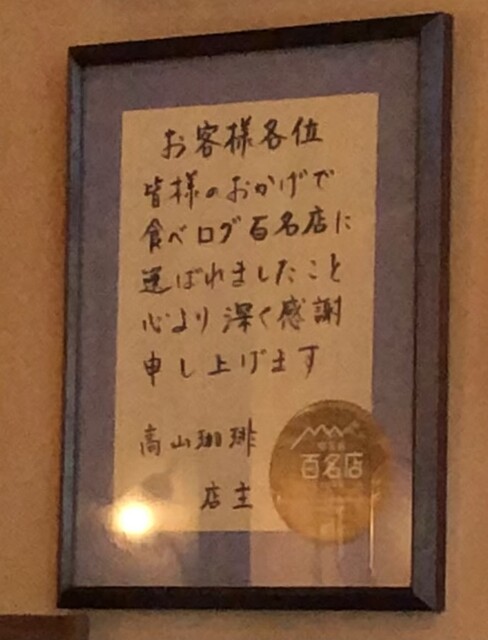 お客様各位
皆様のおかげで
食べログ百名店に
選ばれましたこと
心より深く感謝
申し上げます
高山珈琲
店主
百名店